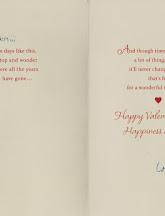 n days like this,
top and wonder
ere all the years
have gone...
And though time
a lot of thing
it'll never chang
that's h
for a wonderful
Happy Valen
Happiness